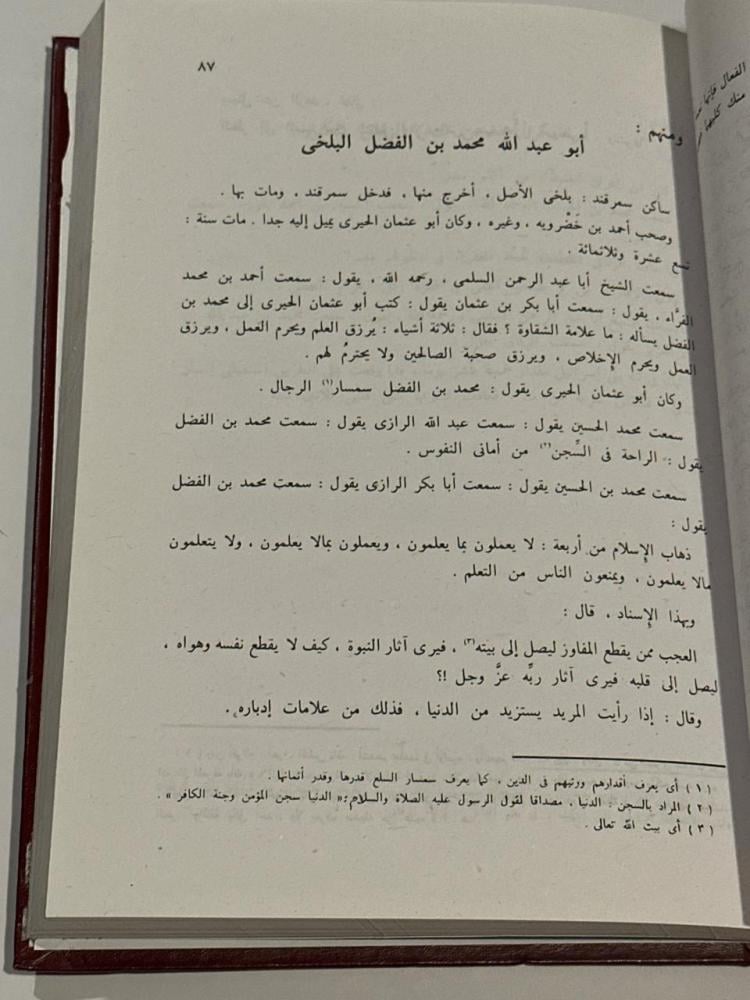 ٨٧
ومنهم :
أبو عبد الله محمد بن الفضل البلخى
ساكن سمرقند : بلخى الأصل ، أخرج منها ، فدخل سمرقند ، ومات بها .
وصحب أحمد بن خَضْرويه ، وغيره ، وكان أبو عثمان الحيرى يميل إليه جدا . مات سنة :
تسع عشرة وثلاثمائة .
سمعت الشيخ أبا عبد الرحمن السلمى ، رحمه الله ، يقول : سمعت أحمد بن محمد
الفرَّاء ، يقول : سمعت أبا بكر بن عثمان يقول : كتب أبو عثمان الحيرى إلى محمد بن
الفضل يسأله : ما علامة الشقاوة ؟ فقال : ثلاثة أشياء : يُرزق العلم ويحرم العمل ، ويرزق
العمل ويحرم الإخلاص ، ويرزق صحبة الصالحين ولا يحترمُ لهم .
وكان أبو عثمان الحيرى يقول : محمد بن الفضل سمسار(١) الرجال .
سمعت محمد الحسين يقول : سمعت عبد الله الرازى يقول : سمعت محمد بن الفضل
يقول : الراحة فى السِّجن(٢) من أمانى النفوس .
سمعت محمد بن الحسين يقول : سمعت أبا بكر الرازى يقول : سمعت محمد بن الفضل
يقول :
ذهاب الإسلام من أربعة : لا يعملون بما يعلمون ، ويعملون بمالا يعلمون ، ولا يتعلمون
مالا يعلمون ، ويمنعون الناس من التعلم .
وبهذا الإسناد ، قال :
العجب ممن يقطع المفاوز ليصل إلى بيته(٣) ، فيرى آثار النبوة ، كيف لا يقطع نفسه وهواه ،
ليصل إلى قلبه فيرى آثار ربِّه عزَّ وجل !؟
وقال : إذا رأيت المريد يستزيد من الدنيا ، فذلك من علامات إدباره .
( ١ ) أى يعرف أقدارهم ورتبهم فى الدين ، كما يعرف سمسار السلع قدرها وقدر أثمانها .
( ٢ ) المراد بالسجن : الدنيا ، مصداقا لقول الرسول عليه الصلاة والسلام : « الدنيا سجن المؤمن وجنة الكافر » .
( ٣ ) أى بيت الله تعالى .
الفعال فإنها
منك